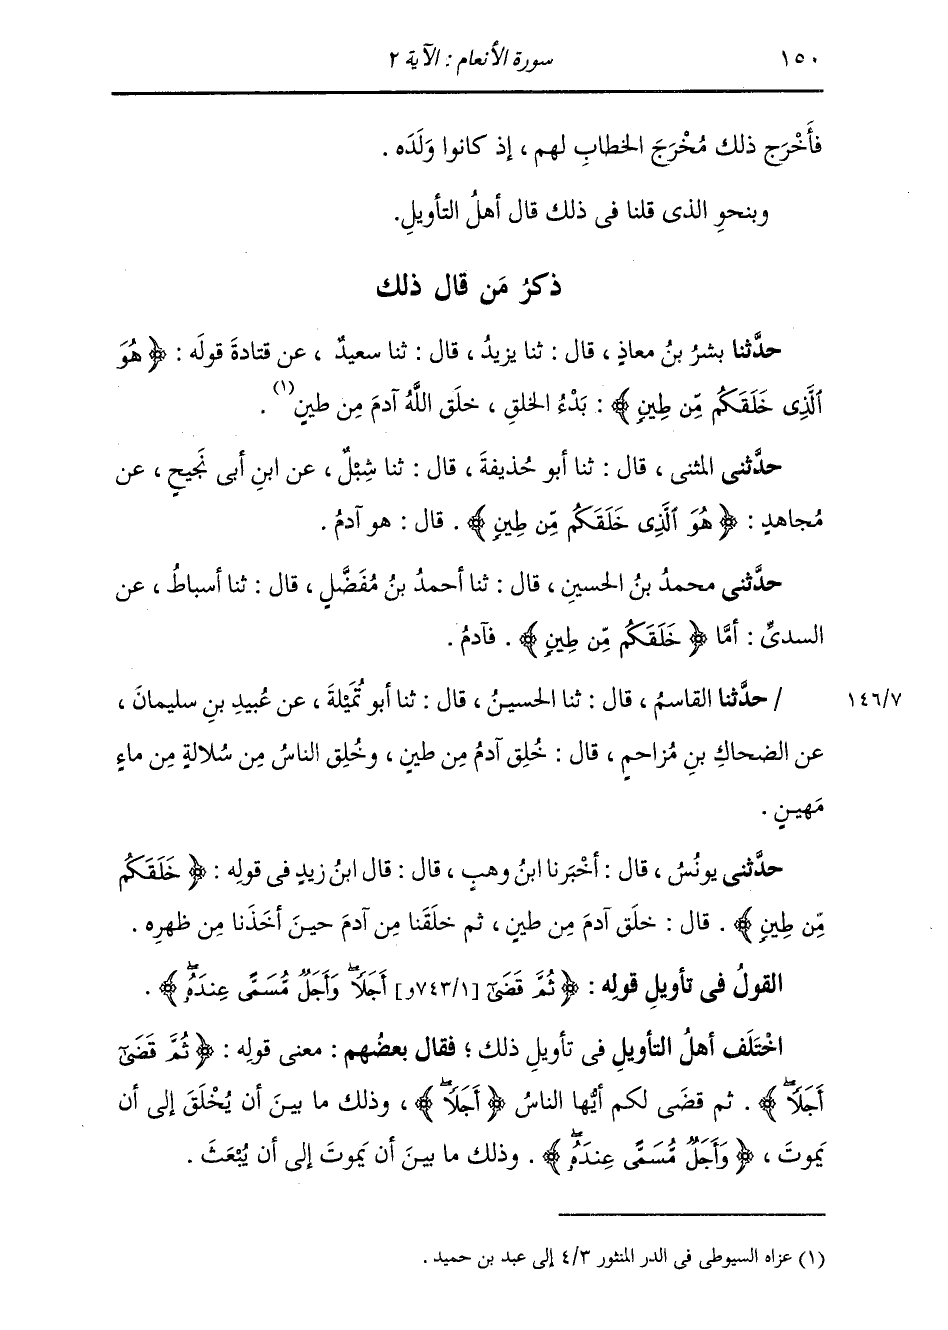 ١٥٠ سورة الأنعام : الآية ٢
فأَخْرَج ذلك مُخْرَجَ الخطابِ لهم ، إذ كانوا وَلَدَه .
وبنحوِ الذى قلنا فى ذلك قال أهلُ التأويلِ.
ذكرُ مَن قال ذلك
حدَّثنا بشرُ بنُ معاذٍ ، قال : ثنا يزيدُ ، قال : ثنا سعيدٌ ، عن قتادةَ قولَه : ﴿ هُوَ
ٱلَّذِى خَلَقَكُم مِّن طِينٍ ﴾ : بَدْءُ الخلقِ ، خلَق اللَّهُ آدمَ مِن طينٍ(١) .
حدَّثنى المثنى ، قال : ثنا أبو حُذيفةَ ، قال : ثنا شِبْلٌ ، عن ابنِ أبى نَجيحٍ ، عن
مُجاهدٍ : ﴿ هُوَ ٱلَّذِى خَلَقَكُم مِّن طِينٍ ﴾ . قال : هو آدمُ .
حدَّثنى محمدُ بنُ الحسينِ ، قال : ثنا أحمدُ بنُ مُفَضَّلٍ ، قال : ثنا أسباطُ ، عن
السدىِّ : أمَّا ﴿ خَلَقَكُم مِّن طِينٍ ﴾ . فآدمُ .
١٤٦/٧ / حدَّثنا القاسمُ ، قال : ثنا الحسينُ ، قال : ثنا أبو تُمَيْلةَ ، عن عُبيدِ بنِ سليمانَ ،
عن الضحاكِ بنِ مُزاحمٍ ، قال : خُلِق آدمُ مِن طينٍ ، وخُلِق الناسُ مِن سُلالةٍ مِن ماءٍ
مَهينٍ .
حدَّثنى يونُسُ ، قال : أخْبَرنا ابنُ وهبٍ ، قال : قال ابنُ زيدٍ فى قولِه : ﴿ خَلَقَكُم
مِّن طِينٍ ﴾ . قال : خلَق آدمَ مِن طينٍ ، ثم خلَقَنا مِن آدمَ حينَ أخَذَنا مِن ظهرِه .
القولُ فى تأويلِ قولِه : ﴿ ثُمَّ قَضَىٰٓ [٧٤٣/١و] أَجَلًاۖ وَأَجَلٌ مُّسَمًّى عِندَهُۥۖ ﴾ .
اخْتَلَف أهلُ التأويلِ فى تأويلِ ذلك ؛ فقال بعضُهم : معنى قولِه : ﴿ ثُمَّ قَضَىٰٓ
أَجَلًاۖ ﴾ . ثم قضَى لكم أيُّها الناسُ ﴿ أَجَلًاۖ ﴾ ، وذلك ما بينَ أن يُخْلَقَ إلى أن
يَموتَ ، ﴿ وَأَجَلٌ مُّسَمًّى عِندَهُۥۖ ﴾ . وذلك ما بينَ أن يَموتَ إلى أن يُبْعَثَ .
(١) عزاه السيوطى فى الدر المنثور ٤/٣ إلى عبد بن حميد .